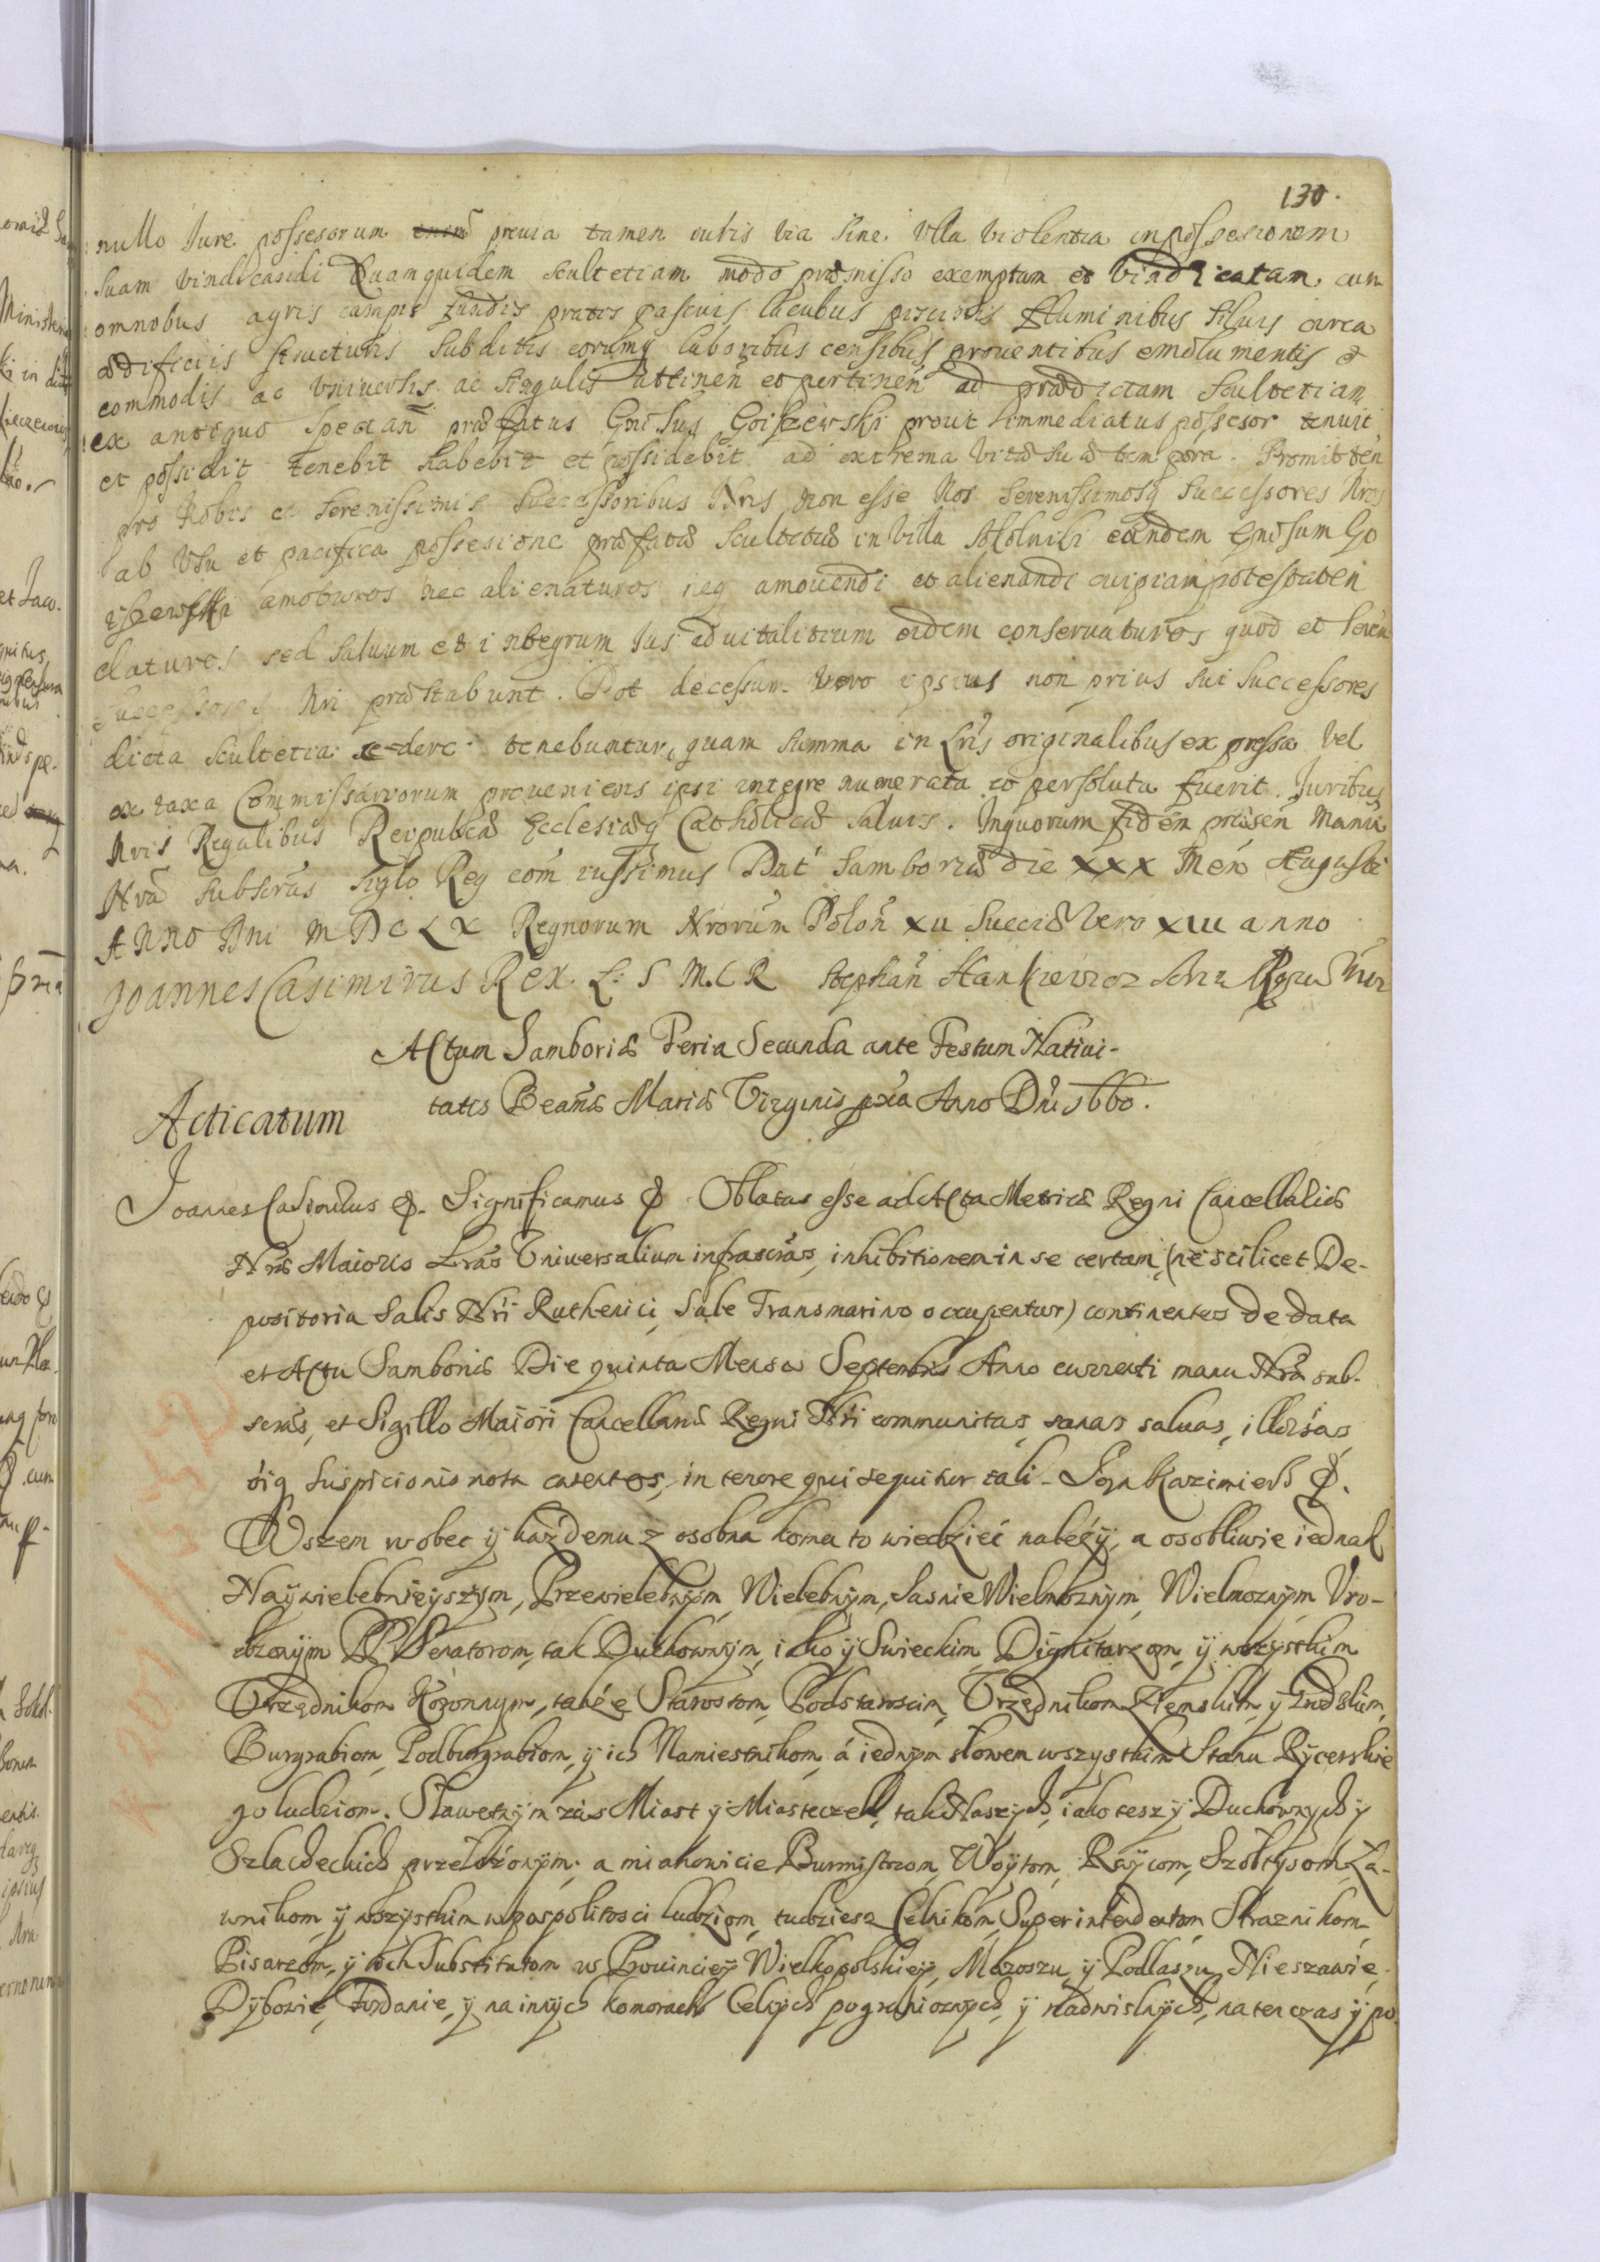 130.
nullo Jure possesorum tamen iuris via sine ulla violentia in possesionem
suam vindicandi Quamquidem scultetiam modo præmisso exemptam et vindicatam, cum
omnobus agris campis fundis pratis pascuis lacubus piscinis fluminibus siluis
ædificiis structuris subditis eorumq laboribus censibus prouentibus emolumentis et
commodis ac vniuersis ac singulis attinen et pertinen ad prædictam scultetiam
ex antiquo spectan præfatus Gnosus prout immediatus possesor tenuit
et possidit tenebit habebit et possidebit ad extrema vitæ suæ tempora. Promitten
pro Nobis et serenissimis successoribus Nris non esse Nos serenissimosq successores Nros
ab vsu et pacifica possesione præfatæ scultetiæ in villa eundem Gnosum Go
amoturos nec alienaturos neq amouendi et alienandi cuipiam potestatem
daturos sed saluum et integrum Jus aduitalitium eidem conseruaturos quod et seren
successores Nri præstabunt. Pot decessum vero ipsius non prius sui successores
dicta scultetia cedere tenebuntur, quam summa in Lris originalibus expressa vel
ex taxa Commissariorum proueniens ipsi integre numerata et persoluta fuerit. Juribus
Nris Regalibus Reipublcæ Ecclesiæq Catholicæ saluis. In quorum fidem præsen Manu
Nra subscras sigło Reg iussimus Dat Samboriæ die XXX Men Augusti
Anno Dni MDCLX Regnorum Nrorum Polon XII Sueciæ Vero XIII anno
Joannes Casimirus Rex. L: S M.C R Stephan Hankiewicz
Actum Samboriæ Feria Secunda ante Festum Natiui-
tatis Beatæ Mariæ Virginis pxa Anno Dni 1660.
Acticatum
Joannes Casimirus &. Significamus & Oblatas esse ad Acta Metricæ Regni Cancellariæ
Nræ Maioris Lras Vniuersalium infrascras, inhibitionem in se certam, (ne scilicet De-
positoria Salis Nri Ruthenici, Sale Transmarino occupentur) continentes de data
et Actu Samboriæ Die quinta Mensis Septembris Anno currenti manu Nra sub-
scras, et Sigillo Maiori Cancellariæ Regni Nri communitas, sanas saluas, illæsas
oiq suspicionis nota carentes, in tenore qui sequitur tali. Jan Kazimierz &.
Wszem wobec ÿ każdemu z osobna komu to wiedzieć należÿ, a osobliwie iednak
Naÿwielebnieÿszÿm, Przewielebnÿm, Wielebnÿm, Jasnie Wielmożnÿm, Wielmoznÿm Vro-
dzonÿm PP Senatorom, tak Duchownÿm, iako ÿ Swieckim, Dignitarzom, ÿ wszystkim
Vrzędnikom Koronnym, także Starostom, Podstaroscim, Vrzędnikom Ziemskim, ÿ Grodskim,
Burgrabiom, Podburgrabiom, ÿ ich Namiestnikom, á iednÿm słowem wszystkim Stanu Rÿcerskie
go ludziom. Sławetnÿm zás Miast ÿ Miasteczek, tak Naszÿch, iako tesz ÿ Duchownÿch ÿ
Szlacheckich przełożonÿm. a mianowicie Burmistrzom, Woÿtom, Raÿcom, Szołtysom, Ła-
wnikom, ÿ wszÿstkim w pospolitosci ludziom, tudziesz Celnikom, Superintendentom Straznikom
Pisarzom, ÿ ich Substitutom w Prouincieÿ Wielkopolskieÿ, Mazoszu, ÿ Podlaszu, Nieszawie,
Dÿbowie, Fordanie, ÿ na innÿch komorach Celnÿch pogranicznÿch, ÿ nadwislnÿch, na ten czas ÿ po